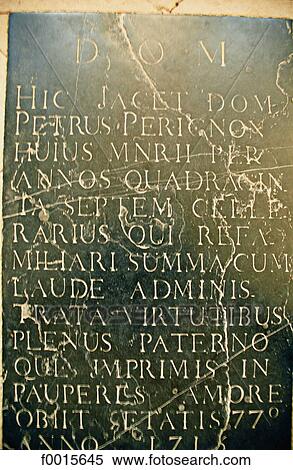 D O M
HIC JACET DOM
PETRUS PERIGNON
HUIUS MNRII PER
ANNOS QUADRAGIN
TA SEPTEM CELLE
RARIUS QUI REFA
MILIARI SUMMA CUM
LAUDE ADMINIS
TRATA IRTUTIBUS
PLENUS PATERNO
QUE IMPRIMIS IN
PAUPERES AMORE
OBIIT ÆTATIS 77º
ANNO 1715
f0015645 www.fotosearch.com